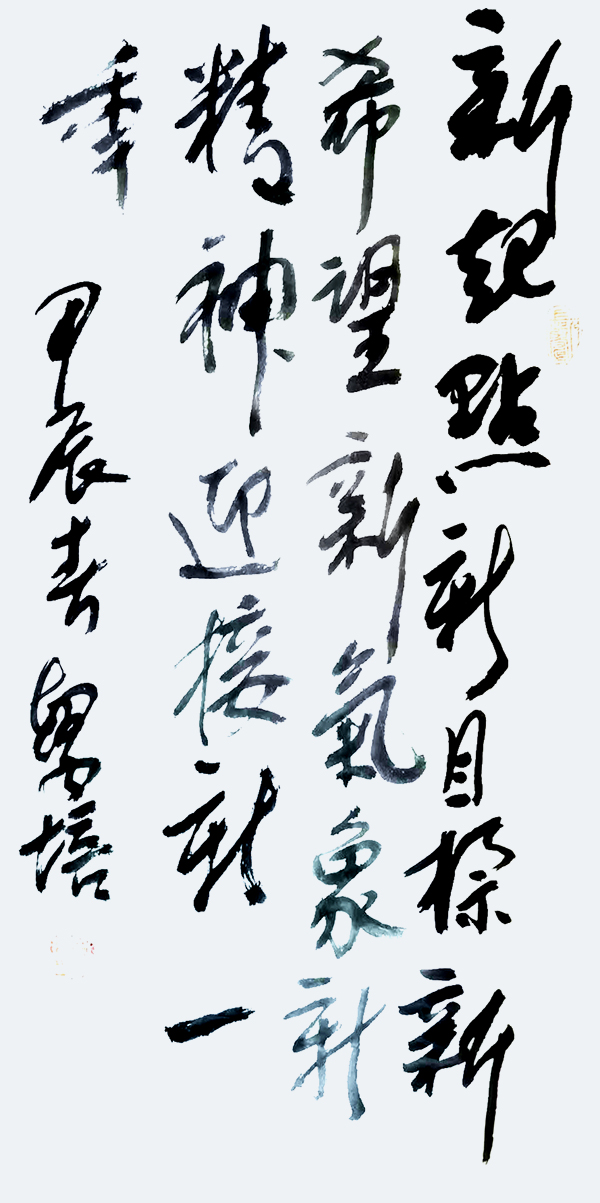 新起點新目標新
希望新氣象新
精神迎接新一
年
甲辰春 培